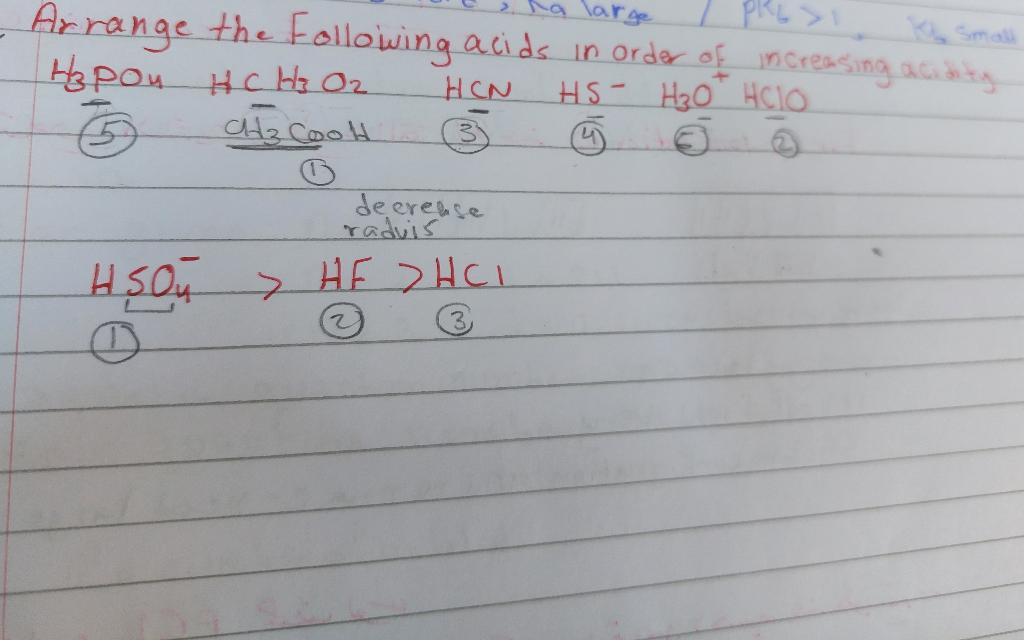 Ka large / pKb >1, Kb small
Arrange the Following acids in order of increasing acidity
H3PO4 HC H3 O2 HCN HS- H3O+ HClO
5 CH3COOH 3 4 2
1
decrease
raduis
HSO4- > HF > HCl
1 2 3